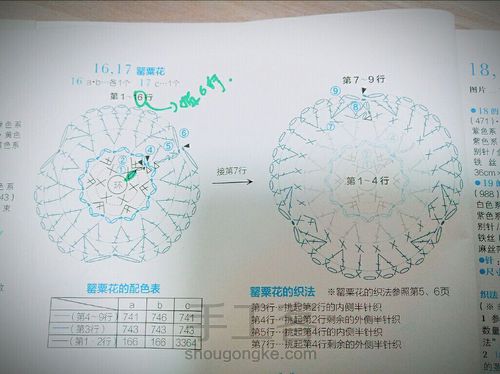 16,17 罂粟花
16 a·b…各1个 17 c…1个
第1~6行
第6行.
第7~9行
⑨
⑧
⑦
⑥
⑤
④
②
环
第1~4行
接第7行
罂粟花的配色表
a b c
(第4~9行) 741 746 741
(第3行) 743 743 743
(第1·2行) 166 166 3364
罂粟花的织法 ※罂粟花的织法参照第5、6页
第3行…挑起第2行的内侧半针织
第4行…挑起第2行剩余的外侧半针织
第5行…挑起第4行的内侧半针织
第7行…挑起第4行剩余的外侧半针织
18.
图片
●18的
(471)·
紫色系
紫色系
别针/
铁丝
36cm×
●19
(988)
白色系
别针/
铁丝
麻丝
●针
●尺
织法
(※
1 参
数
法"
2
色系
黄色
色系
43)
束
shougongke.com